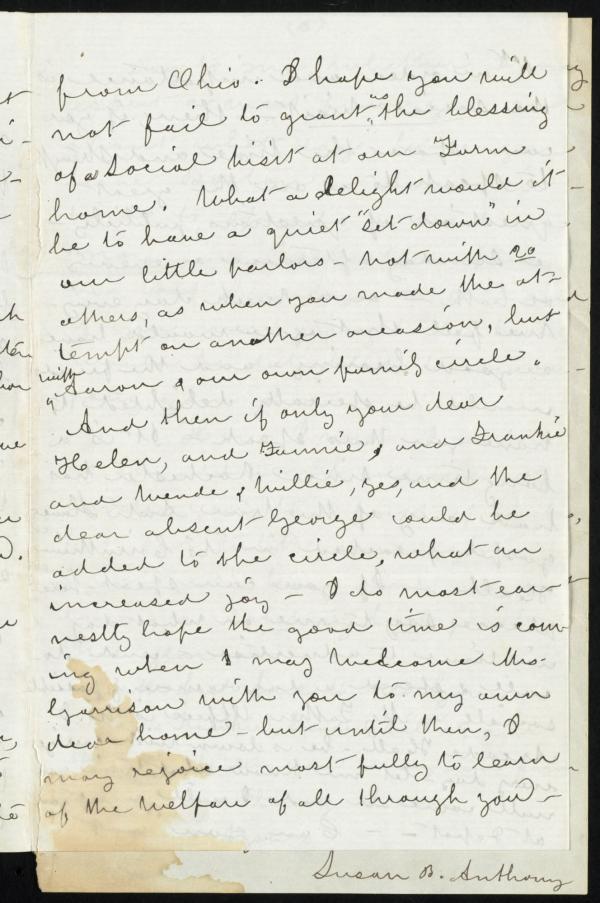 from Ohio. I hope you will
not fail to grant us the blessing
of a social visit at our Farm
home. What a delight would it
be to have a quiet "set down" in
our little parlors - not with 20
others, as when you made the at-
tempt on another occasion, but
with Aaron & our own family circle.
And then if only your dear
Helen, and Fannie, and Frankie
and Wende, Willie, yes, and the
dear absent George could be
added to the circle, what an
increased joy - I do most ear-
nestly hope the good time is com-
ing when I may welcome Mrs.
Garrison with you to my own
dear home - but until then, I
may rejoice most fully to learn
of the welfare of all through you -
Susan B. Anthony